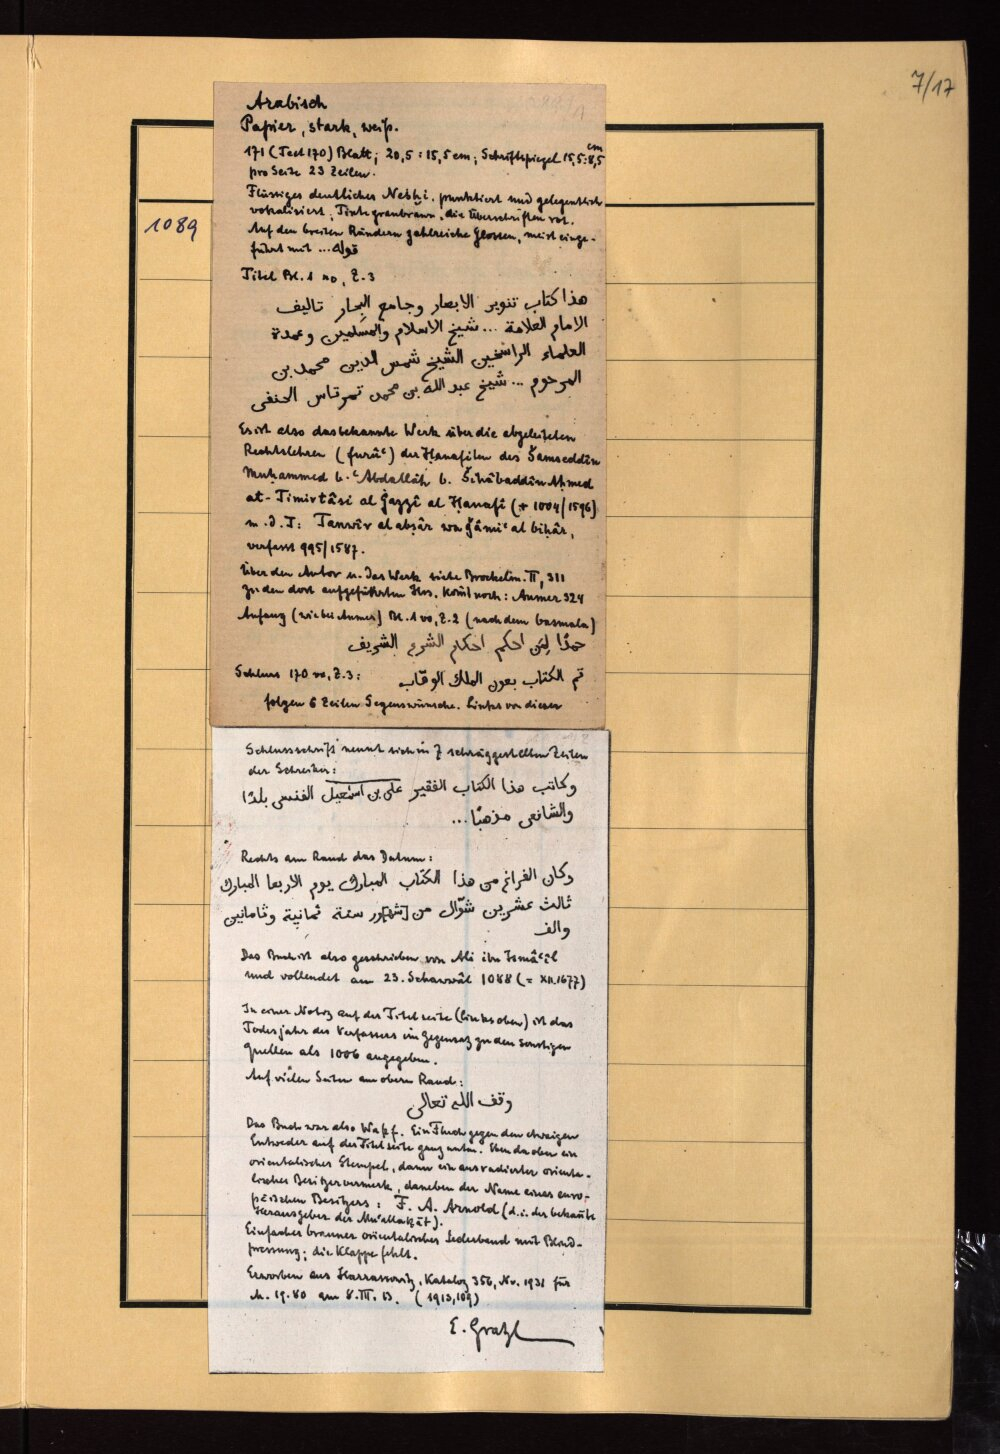 7/17
1089
Arabisch
Papier, stark, weiß.
171 (Text 170) Blatt; 20,5 : 15,5 cm; Schriftspiegel 15,5:8,5 cm
pro Seite 23 Zeilen.
Flüssiges deutliches Neshi, punktiert und gelegentlich
vokalisiert; Tinte graubraun, die Überschriften rot.
Auf den breiten Rändern zahlreiche Glossen, meist einge-
führt mit ... قوله
Titel Bl. 1 ro, Z. 3
هذا كتاب تنوير الابصار وجامع البحار تاليف
الامام العلامة ... شيخ الاسلام والمسلمين وعمدة
العلماء الراسخين الشيخ شمس الدين محمد بن
المرحوم ... شيخ عبد الله بن محمد تمرتاس الحنفى
Es ist also das bekannte Werk über die abgeleiteten
Rechtslehren (furûʿ) der Ḥanafiten des Šamseddîn
Muḥammed b. ʿAbdallâh b. Šihâbaddîn Aḥmed
at-Timirtâsî al Ġazzî al Ḥanafî († 1004/1596)
m. d. T: Tanwîr al abṣâr wa ǧâmiʿ al biḥâr,
verfasst 995/1587.
Über den Autor u. das Werk siehe Brockelm. II, 311
zu den dort aufgeführten Hss. komt noch: Aumer 324
Anfang (wie bei Aumer) Bl. 1 vo, Z. 2 (nach dem basmala)
حمدًا لمن احكم احكام الشرع الشريف
Schluss 170 vo, Z. 3: تم الكتاب بعون الملك الوهّاب
folgen 6 Zeilen Segenswünsche. Links von dieser
Schlussschrift nennt sich in 7 schräggestellten Zeilen
der Schreiber:
وكاتب هذا الكتاب الفقير على بن اسمعيل بلدًا
والشافعى مذهبًا...
Rechts am Rand das Datum:
وكان الفراغ من هذا الكتاب المبارك يوم الاربعا المبارك
ثالث عشرين شوّال من [شهـ]ـور سنة ثمانية وثمانين
والف
Das Buch ist also geschrieben von Ali ibn Ismâʿîl
und vollendet am 23. Schawwâl 1088 (= XII.1677)
In einer Notiz auf der Titelseite (links oben) ist das
Todesjahr des Verfassers im Gegensatz zu den sonstigen
Quellen als 1006 angegeben.
Auf vielen Seiten am obern Rand:
وقف الله تعالى
Das Buch war also Waḳf. Ein Fluch gegen den etwaigen
Entwender auf der Titelseite ganz unten. Ebenda oben ein
orientalischer Stempel, dann ein ausradierter orienta-
lischer Besitzervermerk, daneben der Name eines euro-
päischen Besitzers: F. A. Arnold (d. i. der bekannte
Herausgeber der Muʿallaḳât).
Einfacher brauner orientalischer Lederband mit Blind-
pressung; die Klappe fehlt.
Erworben aus Harrassowitz, Katalog 356, Nr. 1931 für
M. 19.80 am 8. III. 13. (1913,109)
E. Gratzl